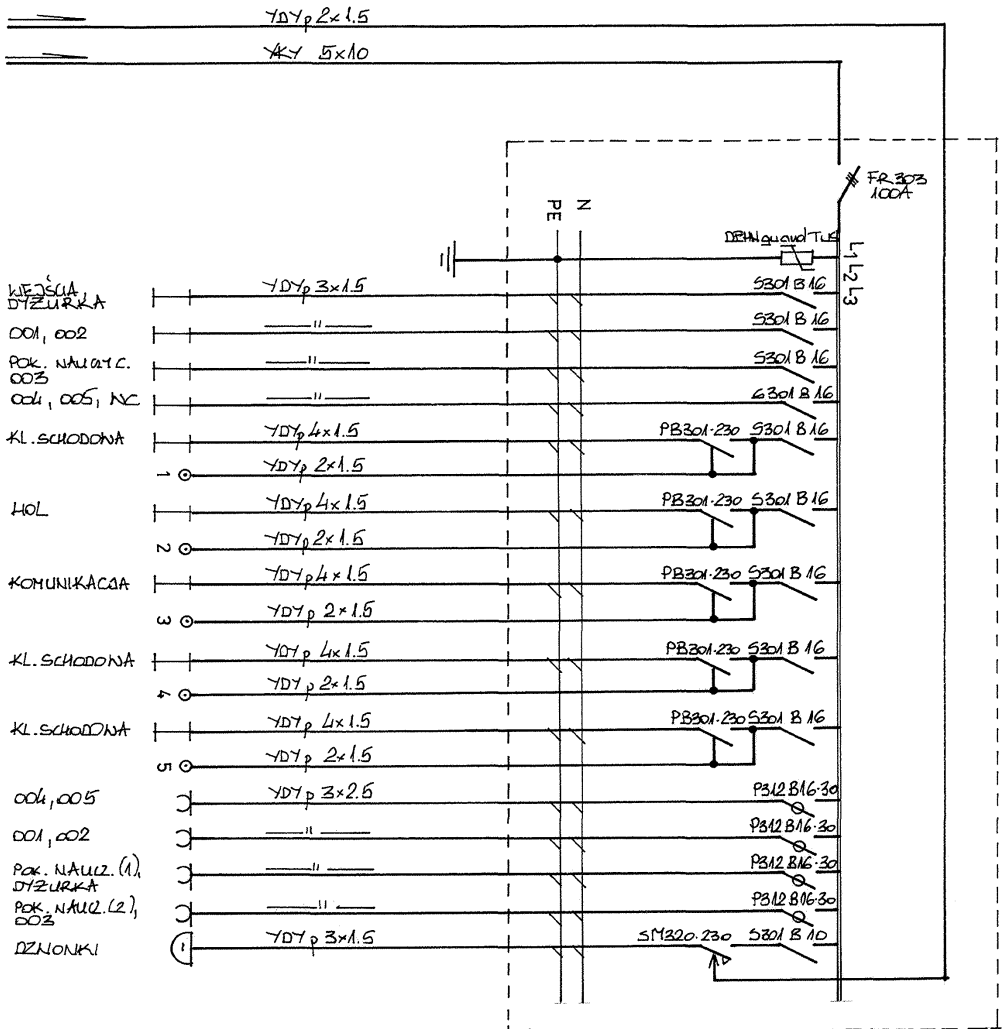 YDYp 2x1.5
YKY 5x10
FR303
100A
PE
N
L1 L2 L3
DEHNguard T
WEJŚCIA
DYŻURKA
YDYp 3x1.5
S301 B 16
001, 002
—"—
S301 B 16
POK. NAUCZYC.
003
—"—
S301 B 16
004, 005, NC
—"—
S301 B 16
KL. SCHODOWA
YDYp 4x1.5
PB301-230
S301 B 16
1
YDYp 2x1.5
HOL
YDYp 4x1.5
PB301-230
S301 B 16
2
YDYp 2x1.5
KOMUNIKACJA
YDYp 4x1.5
PB301-230
S301 B 16
3
YDYp 2x1.5
KL. SCHODOWA
YDYp 4x1.5
PB301-230
S301 B 16
4
YDYp 2x1.5
KL. SCHODOWA
YDYp 4x1.5
PB301-230
S301 B 16
5
YDYp 2x1.5
004, 005
YDYp 3x2.5
P312 B16-30
001, 002
—"—
P312 B16-30
POK. NAUCZ. (1),
DYŻURKA
—"—
P312 B16-30
POK. NAUCZ. (2),
003
—"—
P312 B16-30
DZWONKI
YDYp 3x1.5
SM320-230
S301 B 10